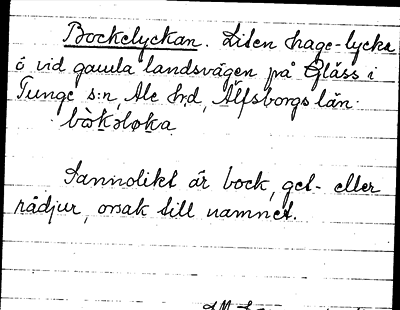 Bockelyckan. Liten hage-lycka
ö vid gamla landsvägen på Gläss i
Tunge s:n, Ale hd, Älfsborgs län.
bò̀kəløka
Sannolikt är bock, get- eller
rådjur, orsak till namnet.